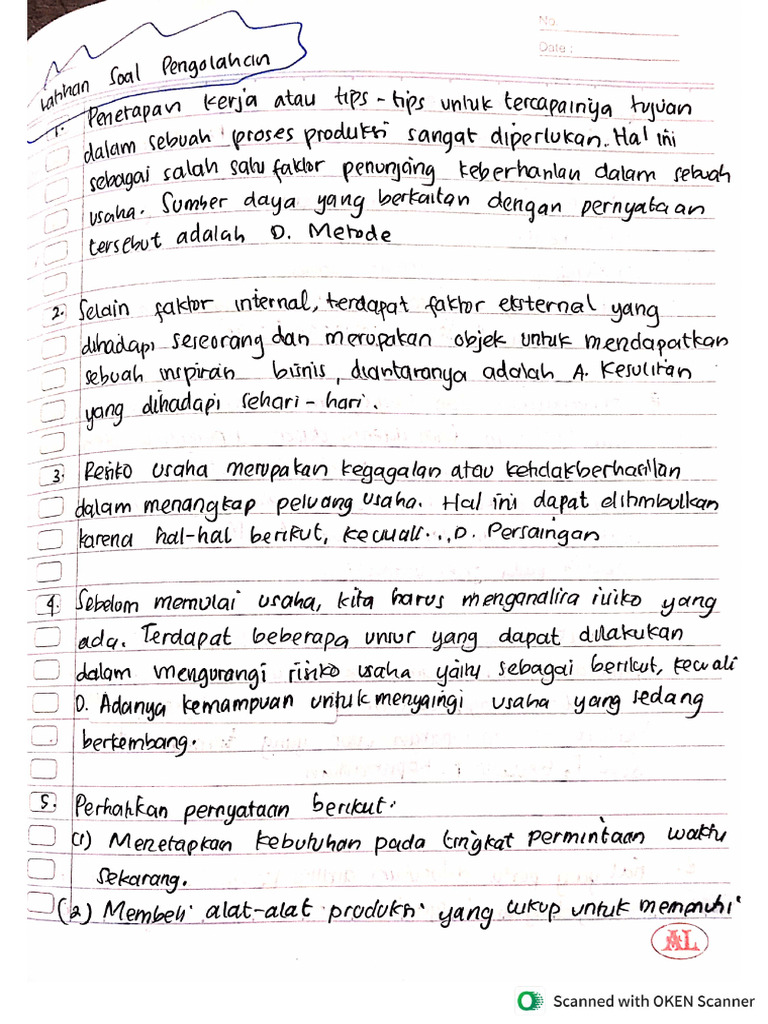 No.
Date :
Latihan Soal Pengolahan
1. Penetapan kerja atau tips-tips untuk tercapainya tujuan
dalam sebuah proses produksi sangat diperlukan. Hal ini
sebagai salah satu faktor penunjang keberhasilan dalam sebuah
usaha. Sumber daya yang berkaitan dengan pernyataan
tersebut adalah D. Metode
2. Selain faktor internal, terdapat faktor eksternal yang
dihadapi seseorang dan merupakan objek untuk mendapatkan
sebuah inspirasi bisnis, diantaranya adalah A. Kesulitan
yang dihadapi sehari-hari.
3. Resiko usaha merupakan kegagalan atau ketidakberhasilan
dalam menangkap peluang usaha. Hal ini dapat ditimbulkan
karena hal-hal berikut, kecuali..., D. Persaingan
4. Sebelum memulai usaha, kita harus menganalisa risiko yang
ada. Terdapat beberapa unsur yang dapat dilakukan
dalam mengurangi risiko usaha yaitu sebagai berikut, kecuali
D. Adanya kemampuan untuk menyaingi usaha yang sedang
berkembang.
5. Perhatikan pernyataan berikut.
(1) Menetapkan kebutuhan pada tingkat permintaan waktu
sekarang.
(2) Membeli alat-alat produksi yang cukup untuk memenuhi
AL
Scanned with OKEN Scanner